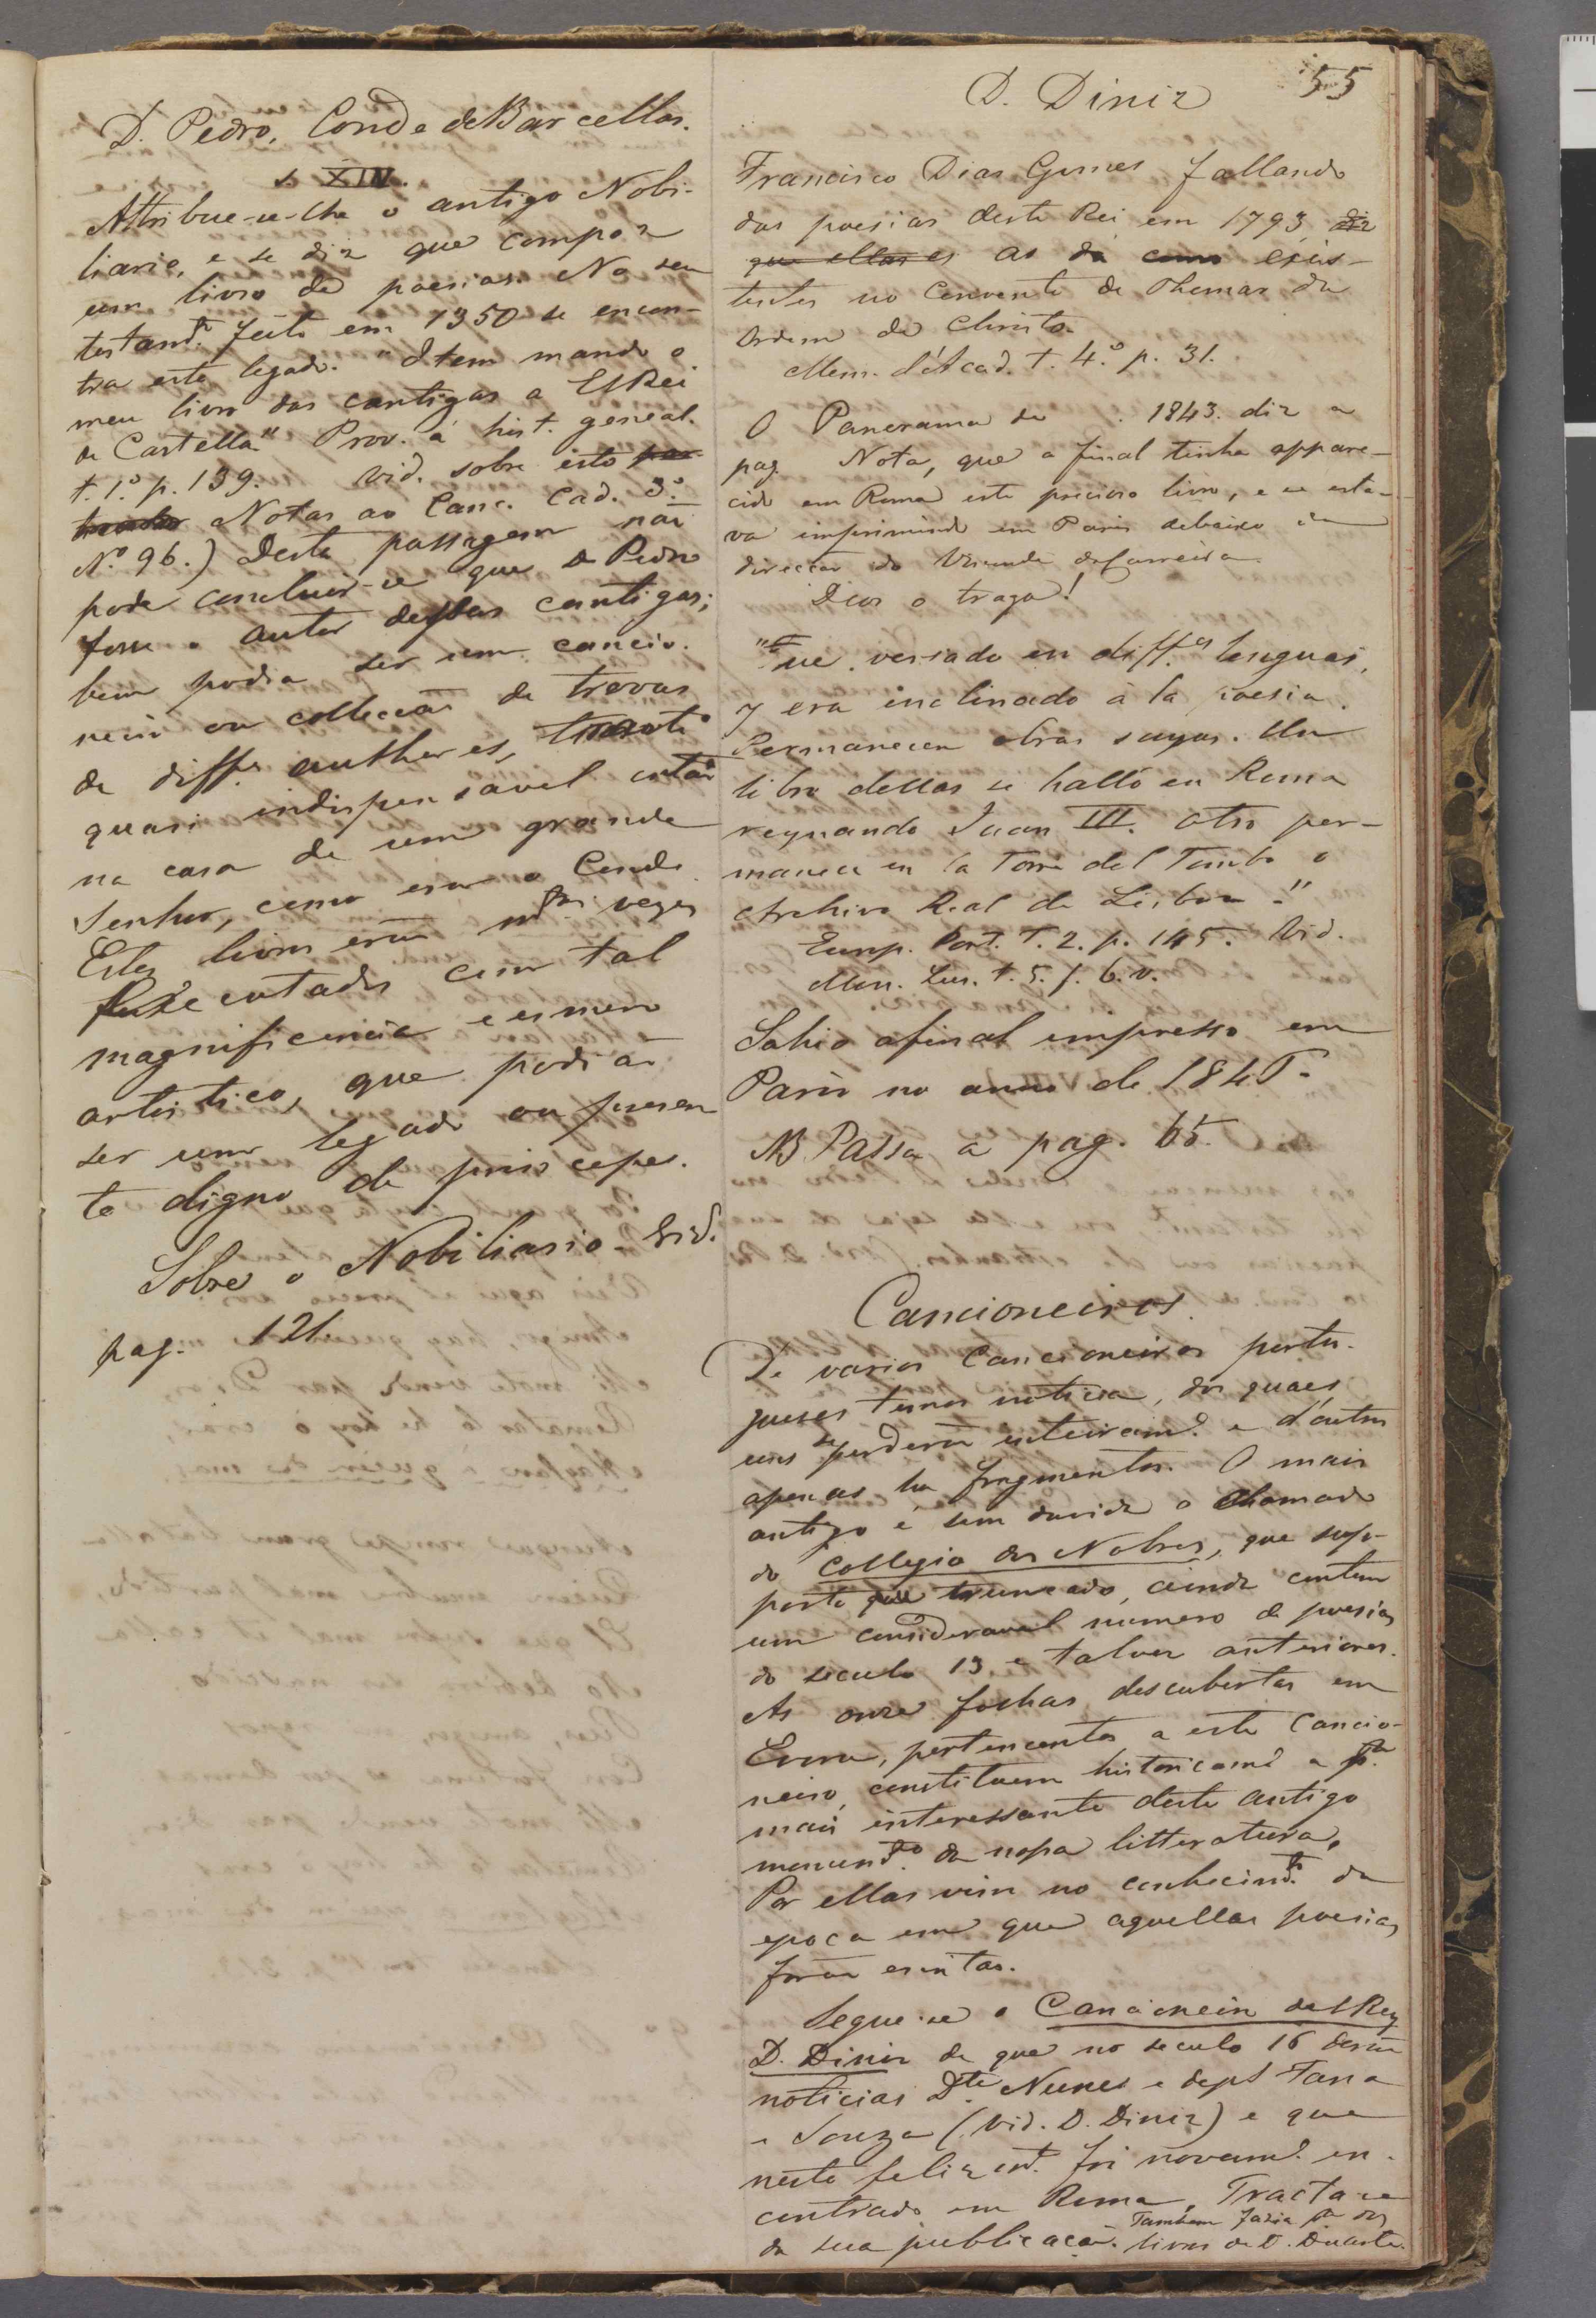 55
D. Pedro, Conde de Barcellos.
s. XIV.
Attribue-se-lhe o antigo Nobi-
liario, e se diz que compoz
um livro de poesias. No seu
testamto. feito em 1350 se encon-
tra este legado. "Item mando o
meu livro das cantigas a ElRei
de Castella" Prov. á hist. geneal.
t. 1.º p. 139. Vid. sobre isto
Notas ao Canc. Cad. 3.º
N.º 96.) Desta passagem não
pode concluir-se que D Pedro
fosse o autor dessas cantigas;
bem podia ser um cancio-
neiro ou collecção de trovas
de diffes. authores,
quasi indispensavel então
na casa de um grande
Senhor, como era o Conde.
Estes livros erão mtas. vezes
executados com tal
magnificencia e esmero
artistico, que podião
ser um legado ou presen
te digno de principes.
Sobre o Nobiliario - Vid.
pag. 121.
D. Diniz
Francisco Dias Gomes fallando
das poesias deste Rei em 1793, diz
que ellas es as dá como exis-
tentes no Convento de Thomar da
Ordem de Christo.
Mem. d'Acad. t. 4.º p. 31.
O Panorama de . 1843. diz a
pag. Nota, que a final tinha appare-
cido em Roma este precioso livro, e se esta-
va imprimindo em Paris debaixo da
direcção do Visconde da Carreira.
Deos o traga!
"Fue versado en diff.es lenguas,
y era inclinado à la poesia.
Permanecen obras suyas. Un
libro dellas se halló en Roma
reynando Juan III. otro per-
manece en la Torre del Tombo o
Archivo Real de Lisboa."
Europ. Port. T. 2. p. 145. Vid.
Mon. Lus. t. 5. f. 6. v.
Sahio afinal impresso em
Paris no anno de 1847.
NB Passa a pag. 65.
Cancioneiros.
De varios Cancioneiros portu-
guezes temos noticia, dos quaes
uns se perderão inteiramte. e d'outros
apenas ha fragmentos. O mais
antigo é sem duvida o chamado
do Collegio dos Nobres, que sup-
posto que truncado, ainda contem
um consideravel numero de poesias
do seculo 13 e talvez anteriores.
As onze folhas descubertas em
Evora, pertencentes a este Cancio-
neiro, constituem historicamte. a pte.
mais interessante deste antigo
monumto. da nossa litteratura.
Por ellas vim no conhecimto. da
epoca em que aquellas poesias
forão escritas.
Segue-se o Cancioneiro delRey
D. Diniz de que no seculo 16 derão
noticias Dte. Nunes e deps. Faria
e Souza (Vid. D. Diniz) e que
neste felizmte. foi novamte. en-
contrado em Roma. Tracta-se
da sua publicação. Tambem fazia pte. dos
livros de D. Duarte.